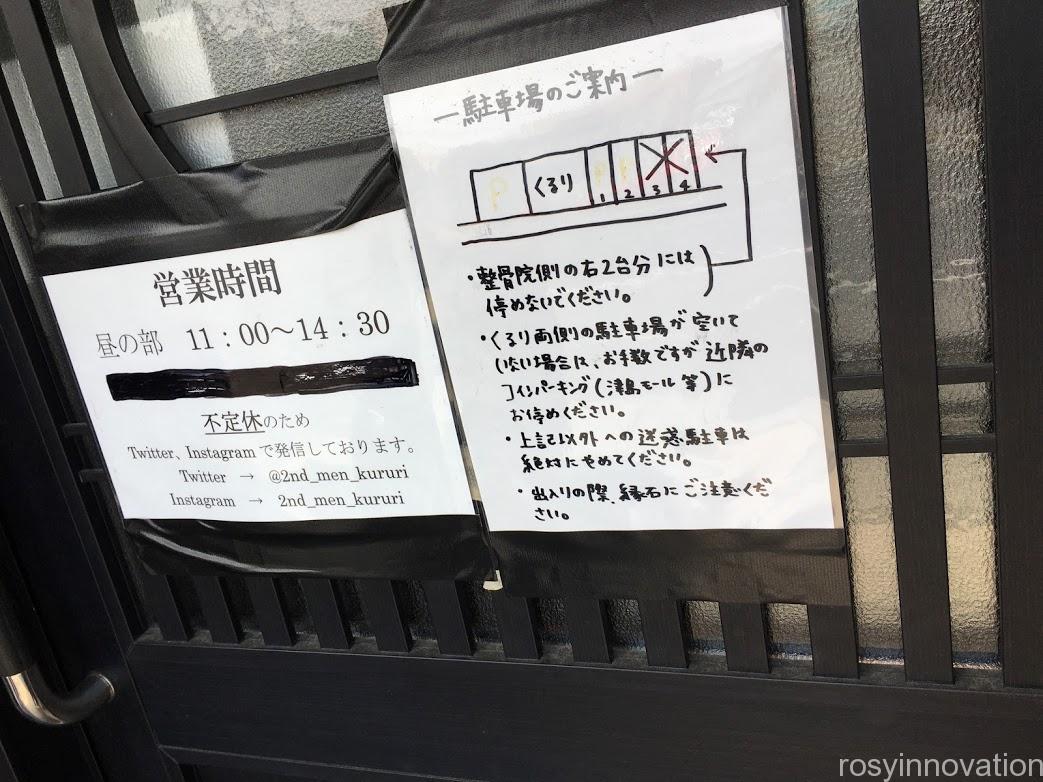 営業時間
昼の部 11：00～14：30
不定休のため
Twitter、Instagramで発信しております。
Twitter → @2nd_men_kururi
Instagram → 2nd_men_kururi
ー駐車場のご案内ー
P くるり 1 2 3 4
・整骨院側の右2台分には
停めないでください。
・くるり両側の駐車場が空いて
ない場合は、お手数ですが近隣の
コインパーキング(津島モール等)に
お停めください。
・上記以外への迷惑駐車は
絶対にやめてください。
・出入りの際、縁石にご注意くだ
さい。
rosyinnovation